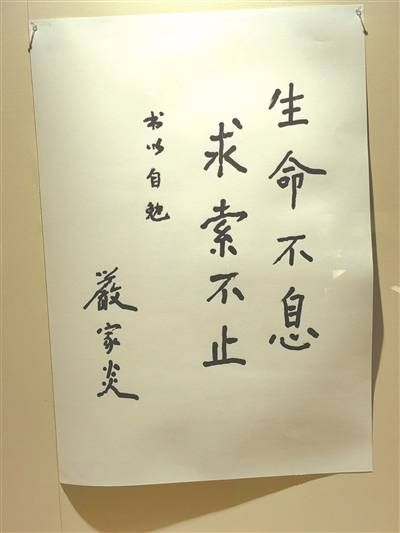 生命不息
求索不止
书以自勉
嚴家炎